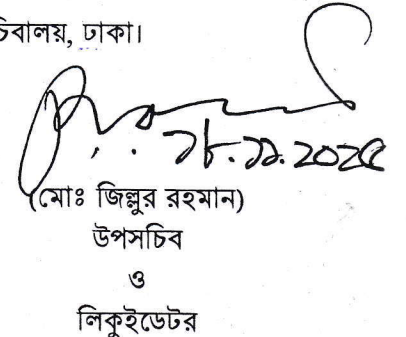 চিবালয়, ঢাকা।
১৮.১১.২০২৫
(মোঃ জিল্লুর রহমান)
উপসচিব
ও
লিকুইডেটর